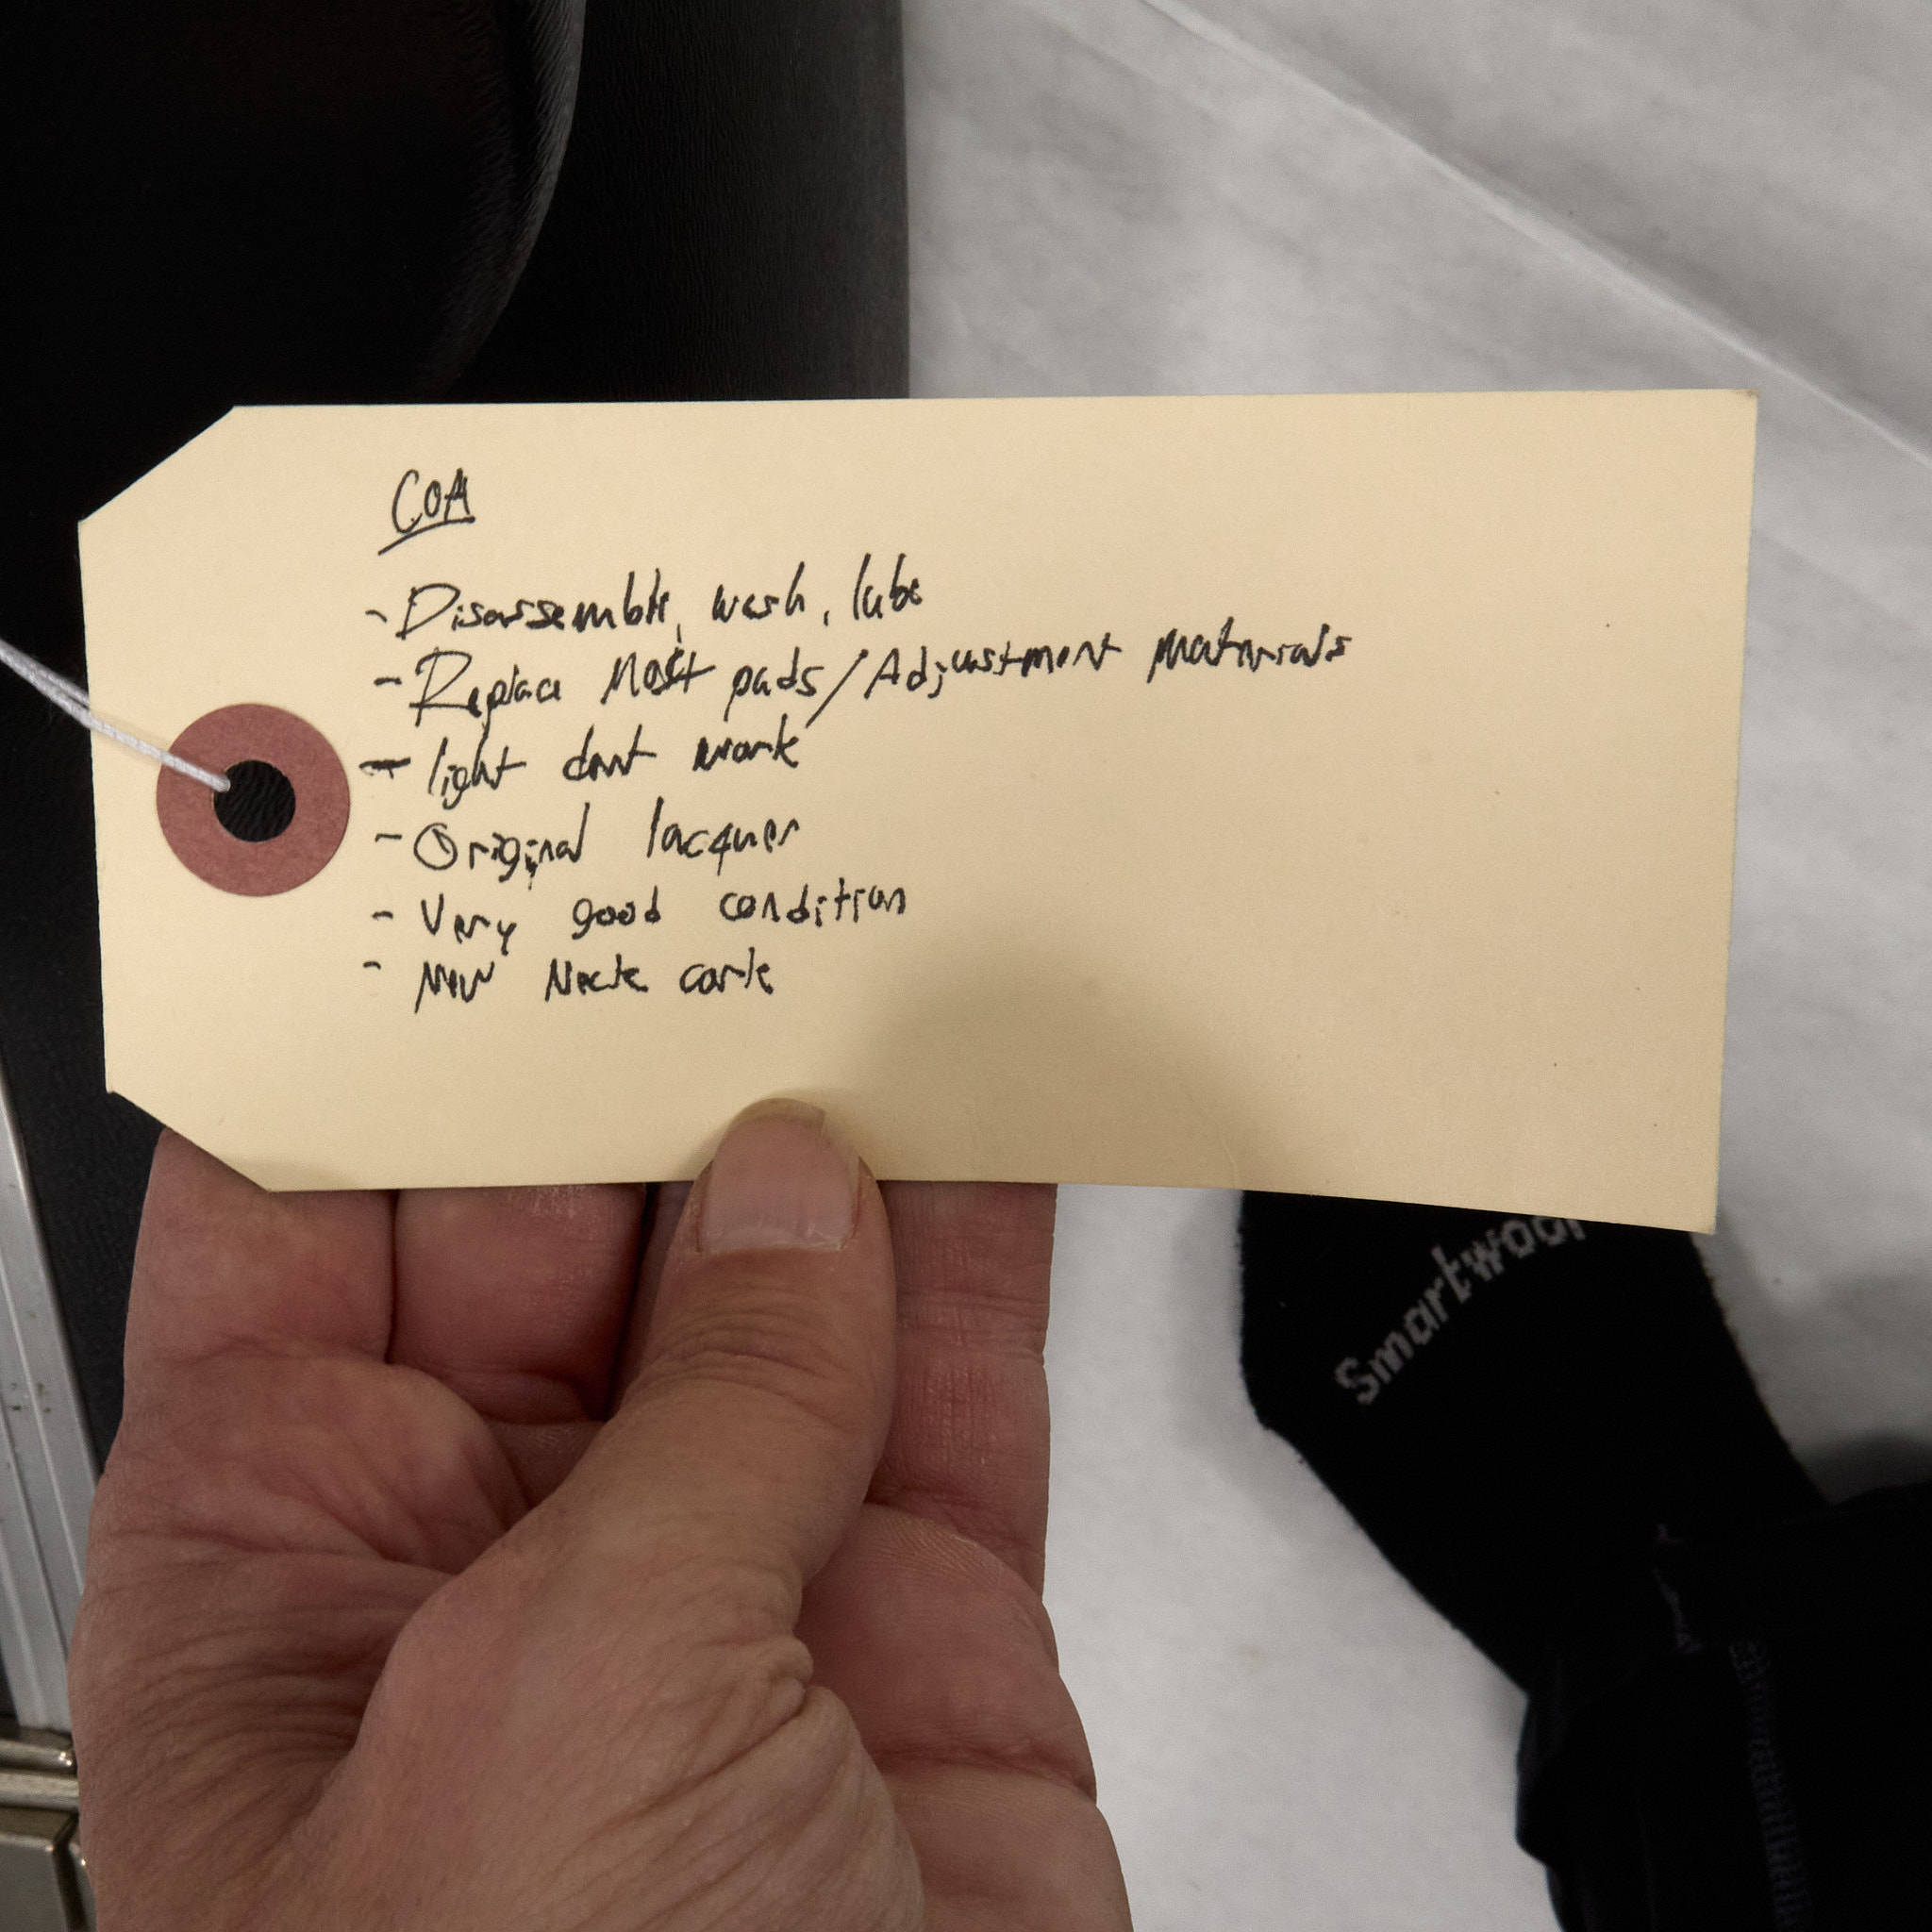 COA
- Disassemble, wash, lube
- Replace Most pads/Adjustment materials
- light dent work
- Original lacquer
- Very good condition
- New Neck cork
Smartwool